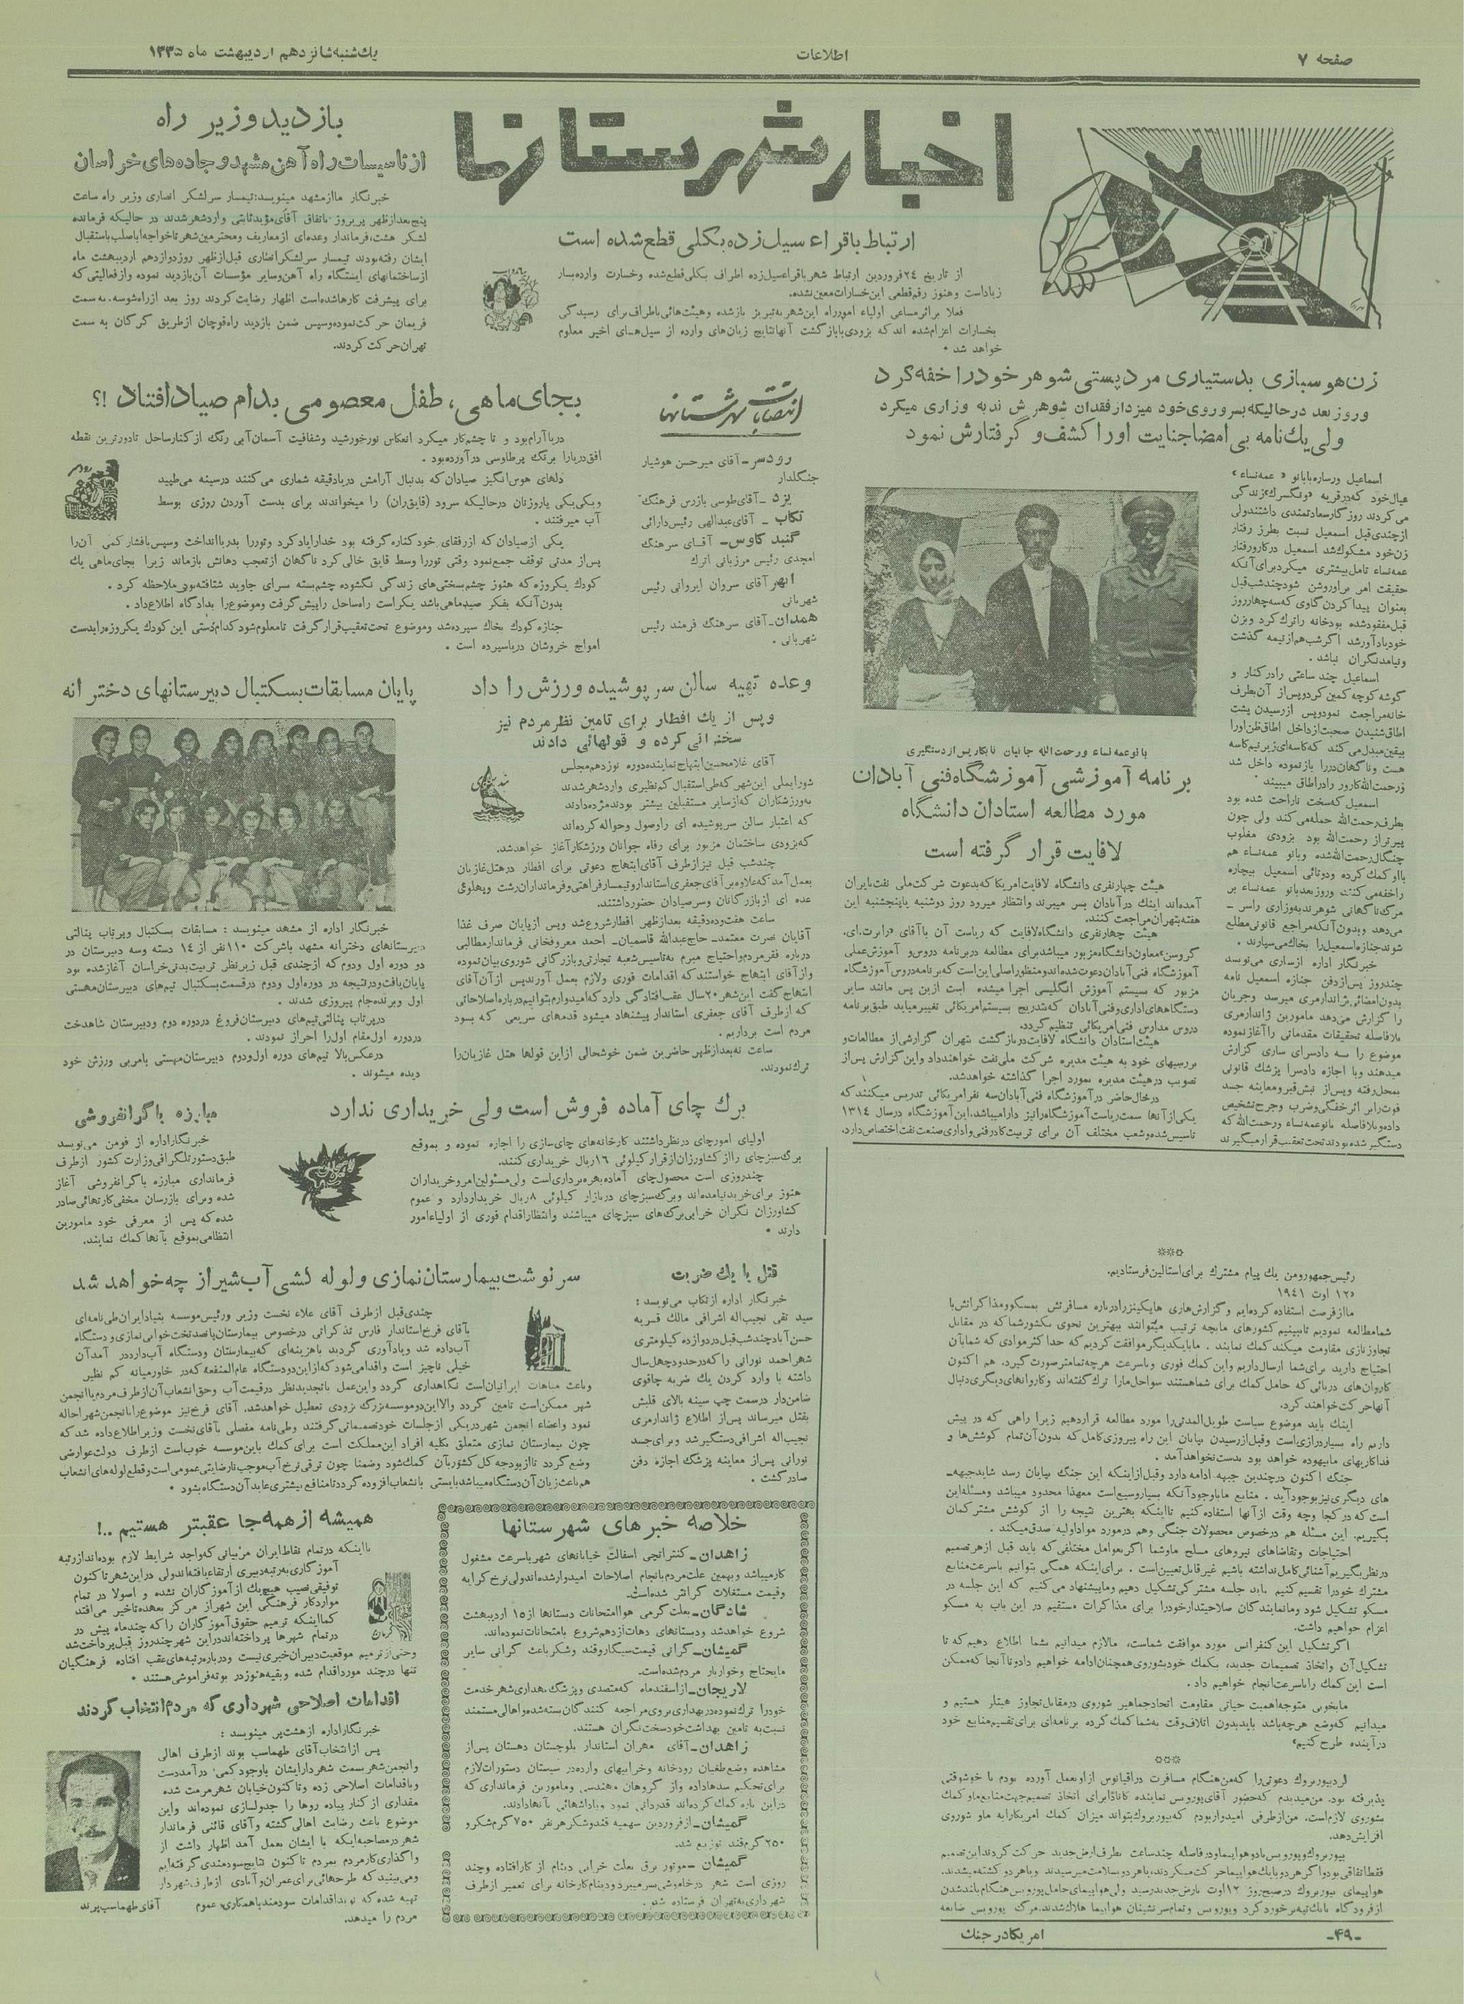 صفحه ۷
اطلاعات
یك‌شنبه شانزدهم اردیبهشت ماه ۱۳۳۵
اخبار شهرستانها
بازدید وزیر راه
از تاسیسات راه‌آهن مشهد و جاده‌های خراسان
خبرنگار ما از مشهد مینویسد: تیمسار سرلشگر انصاری وزیر راه ساعت
پنج بعدازظهر پریروز باتفاق آقای مؤید ثابتی وارد شهر شدند در حالیکه فرمانده
لشگر هشت، فرماندار و عده‌ای از معاریف و محترمین شهر تا خواجه اباصلت باستقبال
ایشان رفته بودند تیمسار سرلشگر انصاری قبل از ظهر روز دوازدهم اردیبهشت ماه
از ساختمانهای ایستگاه راه آهن و سایر مؤسسات آن بازدید نموده و از فعالیتی که
برای پیشرفت کارها شده‌است اظهار رضایت کردند روز بعد از راه شوسه، به سمت
فریمان حرکت نموده و سپس ضمن بازدید راه قوچان از طریق گرگان به سمت
تهران حرکت کردند.
ارتباط باقراء سیل زده بکلی قطع شده است
از تاریخ ۲۴ فروردین ارتباط شهر باقراء سیل‌زده اطراف بکلی قطع شده و خسارت وارده بسیار
زیاد است و هنوز رقم قطعی این خسارات معین نشده.
فعلا براثر مساعی اولیاء امور راه این شهر به تبریز باز شده و هیئت‌هائی باطراف برای رسیدگی
بخسارات اعزام شده اند که بزودی با بازگشت آنها نتایج زیان‌های وارده از سیل‌های اخیر معلوم
خواهد شد .
زن هوسبازی بدستیاری مرد پستی شوهر خود را خفه کرد
و روز بعد در حالیکه بسر و روی خود میزد از فقدان شوهرش ندبه و زاری میکرد
ولی یك نامه بی امضا جنایت او را کشف و گرفتارش نمود
اسماعیل ورساره بابانو « عمه نساء »
عیال خود که در قریه «ونگسرك» زندگی
می کردند روزگار سعادتمندی داشتند ولی
از چندی قبل اسمعیل نسبت بطرز رفتار
زن خود مشکوك شد اسمعیل در کار و رفتار
عمه نساء تامل بیشتری میکرد برای آنکه
حقیقت امر براو روشن شود چند شب قبل
بعنوان پیدا کردن گاوی که سه چهار روز
قبل مفقود شده بود خانه را ترك کرد و بزن
خود یادآور شد اگر شب هم از نیمه گذشت
و نیامد نگران نباشد .
اسماعیل چند ساعتی را در کنار و
گوشه کوچه کمین کرد و پس از آن بطرف
خانه مراجعت نمود و پس از رسیدن پشت
اطاق شنیدن صحبت از داخل اطاق ظن او را
بیقین مبدل می کند که کاسه‌ای زیر نیم کاسه
هست و ناگهان در را باز نموده داخل شد
و رحمت‌الله کارور را در اطاق میبیند
اسمعیل که سخت ناراحت شده بود
بطرف رحمت‌الله حمله می کند ولی چون
پیرتر از رحمت‌الله بود بزودی مغلوب
چنگال رحمت‌الله شده و بانو عمه نساء هم
با او کمك کرده و دوتائی اسمعیل بیچاره
را خفه می کنند و روز بعد بانو عمه نساء بر
مرگ ناگهانی شوهر ندبه و زاری را سر-
می دهد و بدون آنکه مراجع قانونی مطلع
شوند جنازه اسمعیل را بخاك می سپارند .
خبرنگار اداره از ساری می نویسد
چند روز پس از دفن جنازه اسمعیل نامه
بدون امضائی بژاندارمری میرسد و جریان
را گزارش می دهد مامورین ژاندارمری
بلافاصله تحقیقات مقدماتی را آغاز نموده
موضوع را به دادسرای ساری گزارش
میدهند و با اجازه دادسرا پزشك قانونی
بمحل رفته و پس از نبش قبر و معاینه جسد
فوت را بر اثر خفگی و ضرب و جرح تشخیص
داده و بلافاصله بانو عمه نساء و رحمت‌الله که
دستگیر شده بودند تحت تعقیب قرار میگیرند
بانو عمه نساء و رحمت الله جانیان نابکار پس از دستگیری
برنامه آموزشی آموزشگاه فنی آبادان
مورد مطالعه استادان دانشگاه
لافایت قرار گرفته است
هیئت چهار نفری دانشگاه لافایت امریکا که بدعوت شرکت ملی نفت بایران
آمده‌اند اینك در آبادان بسر میبرند و انتظار میرود روز دوشنبه یا پنجشنبه این
هفته بتهران مراجعت کنند.
هیئت چهار نفری دانشگاه لافایت که ریاست آن با آقای «رابرت.ای.
گروسن» معاون دانشگاه مزبور میباشد برای مطالعه در برنامه دروس و آموزش عملی
آموزشگاه فنی آبادان دعوت شده‌اند و منظور اصلی این است که برنامه دروس آموزشگاه
مزبور که سیستم آموزش انگلیسی اجرا میشده است از این پس مانند سایر
دستگاه‌های اداری و فنی آبادان که بتدریج بسیستم امریکائی تغییر مییابد طبق برنامه
دروس مدارس فنی امریکائی تنظیم گردد.
هیئت استادان دانشگاه لافایت در بازگشت بتهران گزارشی از مطالعات و
بررسیهای خود به هیئت مدیره شرکت ملی نفت خواهند داد و این گزارش پس از
تصویب در هیئت مدیره بمورد اجرا گذاشته خواهد شد.
در حال حاضر در آموزشگاه فنی آبادان سه نفر امریکائی تدریس میکنند که
یکی از آنها سمت ریاست آموزشگاه را نیز دارا میباشد. این آموزشگاه در سال ۱۳۱۴
تاسیس شده و شعب مختلف آن برای تربیت کادر فنی و اداری صنعت نفت اختصاص دارد.
انتصابات شهرستانها
رودسر- آقای میرحسن هوشیار
جنگلدار
یزد -آقای طوسی بازرس فرهنگ
تکاب - آقای عبدالهی رئیس دارائی
گنبد کاوس- آقای سرهنگ
امجدی رئیس مرزبانی اترك
ابهر آقای سروان ایروانی رئیس
شهربانی
همدان- آقای سرهنگ فرمند رئیس
شهربانی .
بجای ماهی، طفل معصومی بدام صیاد افتاد !؟
رودسر
دریا آرام بود و تا چشم کار میکرد انعکاس نور خورشید و شفافیت آسمان آبی رنگ از کنار ساحل تا دورترین نقطه
افق دریا را برنگ پر طاوسی در آورده بود .
دلهای هوس انگیز صیادان که بدنبال آرامش دریا دقیقه شماری می کنند در سینه می طپید
و یکی یکی پاروزنان در حالیکه سرود (قایق ران) را میخواندند برای بدست آوردن روزی بوسط
آب میرفتند .
یکی از صیادان که از رفقای خود کناره گرفته بود خدارا یاد کرد و تور را بدریا انداخت و سپس بافشار کمی آن را
پس از مدتی توقف جمع نمود وقتی تور را وسط قایق خالی کرد ناگهان از تعجب دهانش باز ماند زیرا بجای ماهی یك
کودك یکروزه که هنوز چشم بسختی‌های زندگی نگشوده چشم بسته سرای جاوید شتافته بود ملاحظه کرد .
بدون آنکه بفکر صید ماهی باشد یکراست راه ساحل را پیش گرفت و موضوع را بدادگاه اطلاع داد .
جنازه کودك بخاك سپرده شد و موضوع تحت تعقیب قرار گرفت تا معلوم شود کدام دستی این کودك یکروزه را بدست
امواج خروشان دریا سپرده است .
وعده تهیه سالن سرپوشیده ورزش را داد
و پس از یك افطار برای تامین نظر مردم نیز
سخنرانی کرده و قولهائی دادند
بندر پهلوی
آقای غلامحسین ابتهاج نماینده دوره نوزدهم مجلس
شورایملی این شهر که طی استقبال کم نظیری وارد شهر شدند
به ورزشکاران که از سایر مستقبلین بیشتر بودند مژده دادند
که اعتبار سالن سرپوشیده ای را وصول و حواله کرده‌اند
که بزودی ساختمان مزبور برای رفاه جوانان ورزشکار آغاز خواهد شد.
چند شب قبل نیز از طرف آقای ابتهاج دعوتی برای افطار در هتل غازیان
بعمل آمد که علاوه بر آقای جعفری استاندار و تیمسار فراهتی و فرمانداران رشت و پهلوی
عده ای از بازرگانان و سرصیادان حضور داشتند.
ساعت هفت و ده دقیقه بعدازظهر افطار شروع شد و پس از پایان صرف غذا
آقایان نصرت معتمد- حاج عبدالله قاسمیان- احمد معروفخانی فرماندار مطالبی
درباره فقر مردم و احتیاج مبرم به تاسیس شعبه تجارتی و بازرگانی شوروی بیان نموده
و از آقای ابتهاج خواستند که اقدامات فوری و لازم بعمل آورند پس از آن آقای
ابتهاج گفت این شهر ۲۰ سال عقب افتادگی دارد که امیدوارم بتوانیم درباره اصلاحاتی
که از طرف آقای جعفری استاندار پیشنهاد میشود قدمهای سریعی که بسود
مردم است برداریم .
ساعت نه بعدازظهر حاضرین ضمن خوشحالی از این قولها هتل غازیان را
ترك نمودند.
پایان مسابقات بسکتبال دبیرستانهای دخترانه
خبرنگار اداره از مشهد مینویسد : مسابقات بسکتبال و پرتاب پنالتی
دبیرستانهای دخترانه مشهد باشرکت ۱۱۰ نفر از ۱۴ دسته و سه دبیرستان در
دو دوره اول و دوم که از چندی قبل زیرنظر تربیت بدنی خراسان آغاز شده بود
پایان یافت و در نتیجه در دوره اول و دوم در قسمت بسکتبال تیم‌های دبیرستان مهستی
اول و برنده جام پیروزی شدند .
در پرتاب پنالتی تیم‌های دبیرستان فروغ در دوره دوم و دبیرستان شاهدخت
در دوره اول مقام اول را احراز نمودند .
در عکس بالا تیم‌های دوره اول و دوم دبیرستان مهستی بامربی ورزش خود
دیده میشوند .
برك چای آماده فروش است ولی خریداری ندارد
لاهیجان
اولیای امور چای در نظر داشتند کارخانه‌های چای‌سازی را اجاره نموده و بموقع
برگ سبز چای را از کشاورزان از قرار کیلوئی ۱۶ ریال خریداری کنند.
چند روزی است محصول چای آماده بهره‌برداری است ولی مسئولین امر و خریداران
هنوز برای خرید نیامده‌اند و برگ سبز چای در بازار کیلوئی ۸ ریال خریدار دارد و عموم
کشاورزان نگران خرابی برك‌های سبز چای میباشند و انتظار اقدام فوری از اولیاء امور
دارند .
مبارزه با گرانفروشی
خبرنگار اداره از فومن می نویسد
طبق دستور تلگرافی وزارت کشور از طرف
فرمانداری مبارزه با گرانفروشی آغاز
شده و برای بازرسان مخفی کارتهائی صادر
شده که پس از معرفی خود مامورین
انتظامی بموقع با آنها کمك نمایند.
قتل با یك ضربت
خبرنگار اداره از تکاب می نویسد :
سید تقی نجیب‌اله اشرافی مالك قریه
حسن آباد چند شب قبل در دوازده کیلومتری
شهر احمد نورانی را که در حدود چهل سال
داشته با وارد کردن یك ضربه چاقوی
ضامن‌دار در سمت چپ سینه بالای قلبش
بقتل میرساند پس از اطلاع ژاندارمری
نجیب‌اله اشرافی دستگیر شد و برای جسد
نورانی پس از معاینه پزشك اجازه دفن
صادر گشت .
سرنوشت بیمارستان نمازی و لوله کشی آب شیراز چه خواهد شد
چندی قبل از طرف آقای علاء نخست وزیر و رئیس موسسه بنیاد ایران طی نامه‌ای
با آقای فرخ استاندار فارس تذکراتی در خصوص بیمارستان پانصد تختخوابی نمازی و دستگاه
آب داده شد و یادآوری گردید باهزینه‌ای که بیمارستان و دستگاه آب دارد درآمد آن
خیلی ناچیز است و اقدامی شود که از این دو دستگاه عام‌المنفعه که در خاورمیانه کم نظیر
و باعث مباهات ایرانیان است نگاهداری گردد و این عمل باتجدید نظر در قیمت آب و حق انشعاب آن از طرف مردم با انجمن
شهر ممکن است تامین گردد والا این دو موسسه بزرگ بزودی تعطیل خواهد شد. آقای فرخ نیز موضوع را بانجمن شهر احاله
نمود و اعضاء انجمن شهر در یکی از جلسات خود تصمیماتی گرفتند و طی نامه مفصلی بآقای نخست وزیر اطلاع داده شد که
چون بیمارستان نمازی متعلق بکلیه افراد این مملکت است برای کمك باین موسسه خوبست از طرف دولت عوارضی
وضع گردد تا از بودجه کل کشور بآن کمك شود و ضمنا چون ترقی نرخ آب موجب نارضایتی عمومی است و قطع لوله‌های انشعاب
هم باعث زیان آن دستگاه میباشد بایستی بانشعاب افزوده گردد تا منافع بیشتری عاید آن دستگاه بشود .
خلاصه خبرهای شهرستانها
زاهدان- کنتراتچی اسفالت خیابانهای شهر باسرعت مشغول
کار میباشد و بهمین علت مردم بانجام اصلاحات امیدوار شده‌اند ولی نرخ کرایه
وقیمت مستغلات گرانتر شده‌است.
شادگان- بعلت گرمی هوا امتحانات دبستانها از ۱۵ اردیبهشت
شروع خواهد شد و دبستانهای دهات از دهم شروع بامتحانات نموده‌اند.
گمیشان- گرانی قیمت سیگار و قند و شکر باعث گرانی سایر
مایحتاج و خواربار مردم شده‌است.
لاریجان- از اسفند ماه که متصدی و پزشگ بهداری شهر خدمت
خود را ترك نموده در بهداری بروی مراجعه کنندگان بسته شده و اهالی مستمند
نسبت به تامین بهداشت خود سخت نگران هستند.
زاهدان- آقای مهران استاندار بلوچستان دهستان پس از
مشاهده وضع طغیان رودخانه و خرابیهای وارده در سیستان دستورات لازم
برای تحکیم سدها داده و از گروهان مهندسی و مامورین فرمانداری که
در این باره کمك کرده‌اند قدردانی نمود و پاداشهائی بآنها دادند.
گمیشان- از فروردین سهمیه قند و شکر هر نفر ۷۵۰ گرم شکر و
۲۵۰ گرم قند توزیع شد.
گمیشان -موتور برق بعلت خرابی دینام از کار افتاده و چند
روزی است شهر در خاموشی بسر میبرد و دینام کارخانه برای تعمیر از طرف
شهرداری به تهران فرستاده شد .
همیشه از همه جا عقبتر هستیم ..!
کرمان
با اینکه در تمام نقاط ایران مربیانی که واجد شرایط لازم بوده‌اند از رتبه
آموزگاری به رتبه دبیری ارتقاء یافته‌اند ولی در این شهر تا کنون
توفیقی نصیب هیچ یك از آموزگاران نشده و اصولا در تمام
موارد کار فرهنگی این شهر از مرکز بعهده تاخیر می افتد
کما اینکه ترمیم حقوق آموزگاران را که چند ماه پیش در
در تمام شهرها پرداخته‌اند در این شهر چند روز قبل پرداخت شد
و حتی از ترمیم موقعیت دبیران خبری نیست و درباره رتبه‌های عقب افتاده فرهنگیان
تنها در چند مورد اقدام شده و بقیه هنوز در بوته فراموشی هستند .
اقدامات اصلاحی شهرداری که مردم انتخاب کردند
خبرنگار اداره از هشتپر مینویسد :
پس از انتخاب آقای طهماسب پوند از طرف اهالی
و انجمن شهر بسمت شهردار ایشان با وجود کمی درآمد دست
و باقدامات اصلاحی زده و تا کنون خیابان شهر مرمت شده
مقداری از کنار پیاده روها را جدولسازی نموده‌اند و این
موضوع باعث رضایت اهالی گشته و آقای قائنی فرماندار
شهر در مصاحبه ایکه با ایشان بعمل آمد اظهار داشت از
واگذاری کار مردم بمردم تا کنون نتایج سودمندی گرفته‌ایم
و می بینید که طرحهائی برای عمران و آبادی از طرف شهردار
تهیه شده که نوید اقدامات سودمند باهمکاری عموم
مردم را میدهد.
رئیس جمهور ومن یك پیام مشترك برای استالین فرستادیم.
«۱۲ اوت ۱۹۴۱
ما از فرصت استفاده کرده‌ایم و گزارش هاری هاپکینز را درباره مسافرتش بمسکو و مذاکراتش با
شما مطالعه نمودیم تا ببینیم کشورهای ما بچه ترتیب میتوانند ببهترین نحوی بکشور شما که در مقابل
تجاوز نازی مقاومت میکند کمك نمایند . ما با یکدیگر موافقت کردیم که حداکثر موادی که شما بآن
احتیاج دارید برای شما ارسال داریم و این کمك فوری و باسرعت هرچه تمامتر صورت گیرد، هم اکنون
کاروان‌های دریائی که حامل کمك برای شما هستند سواحل ما را ترك گفته‌اند و کاروانهای دیگری دنبال
آنها حرکت خواهند کرد.
اینك باید موضوع سیاست طویل‌المدتی را مورد مطالعه قرار دهیم زیرا راهی که در پیش
داریم راه بسیار درازی است و قبل از رسیدن بپایان این راه پیروزی کامل که بدون آن تمام کوشش‌ها و
فداکاریهای ما بیهوده خواهد بود بدست نخواهد آمد .
جنگ اکنون در چندین جبهه ادامه دارد و قبل از اینکه این جنگ بپایان رسد شاید جبهه-
های دیگری نیز بوجود آید . منابع ما باوجود آنکه بسیار وسیع است معهذا محدود میباشد و مسئله این
است که در کجا و چه وقت از آنها استفاده کنیم تا اینکه بهترین نتیجه را از کوشش مشترکمان
بگیریم. این مسئله هم در خصوص محصولات جنگی و هم در مورد مواد اولیه صدق میکند .
احتیاجات و تقاضاهای نیروهای مسلح ما و شما اگر بعوامل مختلفی که باید قبل از هر تصمیم
در نظر بگیریم آشنائی کامل نداشته باشیم غیر قابل تعیین است . برای اینکه همگی بتوانیم باسرعت منابع
مشترك خود را تقسیم کنیم باید جلسه مشترکی تشکیل دهیم و ما پیشنهاد می کنیم که این جلسه در
مسکو تشکیل شود و ما نمایندگان صلاحیتدار خود را برای مذاکرات مستقیم در این باب به مسکو
اعزام خواهیم داشت.
اگر تشکیل این کنفرانس مورد موافقت شماست، ما لازم میدانیم بشما اطلاع دهیم که تا
تشکیل آن و اتخاذ تصمیمات جدید، بکمك خود بشوروی همچنان ادامه خواهیم داد و تا آنجا که ممکن
است این کمك را باسرعت انجام خواهیم داد .
ما بخوبی متوجه اهمیت حیاتی مقاومت اتحاد جماهیر شوروی در مقابل تجاوز هیتلر هستیم و
میدانیم که وضع هرچه باشد باید بدون اتلاف وقت به شما کمك کرده برنامه‌ای برای تقسیم منابع خود
در آینده طرح کنیم»
لرد بیوربروك دعوتی را که من هنگام مسافرت در اقیانوس از او بعمل آورده بودم با خوشوقتی
پذیرفته بود. من میدیدم که حضور آقای پورویس نماینده کانادا برای اتخاذ تصمیم جهت منابع ما و کمك
بشوروی لازم است. من از طرفی امیدوار بودم که بیوربروك بتواند میزان کمك امریکا را به ما و شوروی
افزایش دهد.
بیوربروك و پورویس با دو هواپیما و در فاصله چند ساعت بطرف ارض جدید حرکت کردند این تصمیم
فقط اتفاقی بود و اگر هر دو با یك هواپیما حرکت میکردند، یا هر دو سلامت میرسیدند و یا هر دو کشته میشدند.
هواپیمای بیوربروك در صبح روز ۱۲ اوت بارض جدید رسید ولی هواپیمای حامل پورویس هنگام بلند شدن
از فرودگاه با یك تپه برخورد کرد و پورویس و تمام سرنشینان هواپیما هلاك شدند. مرگ پورویس ضایعه
آقای طهماسب پرند
امریکا در جنك
-۴۹-